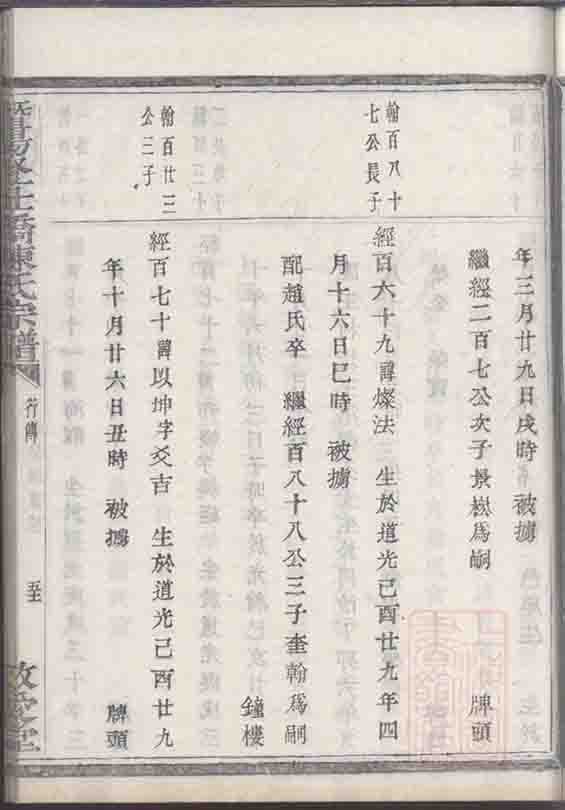 年三月廿九日戌時 被擄
繼經二百七公次子景樹爲嗣 牌頭
翰百八十
七公長子
經百六十九諱燦法 生於道光己酉廿九年四
月十六日巳時 被擄
配趙氏卒 繼經百八十八公三子奎翰爲嗣 鐘樓
翰百廿三
公三子
經百七十諱以坤字爻吉 生於道光己酉廿九
年十月廿六日丑時 被擄 牌頭
陳氏宗譜
行傳